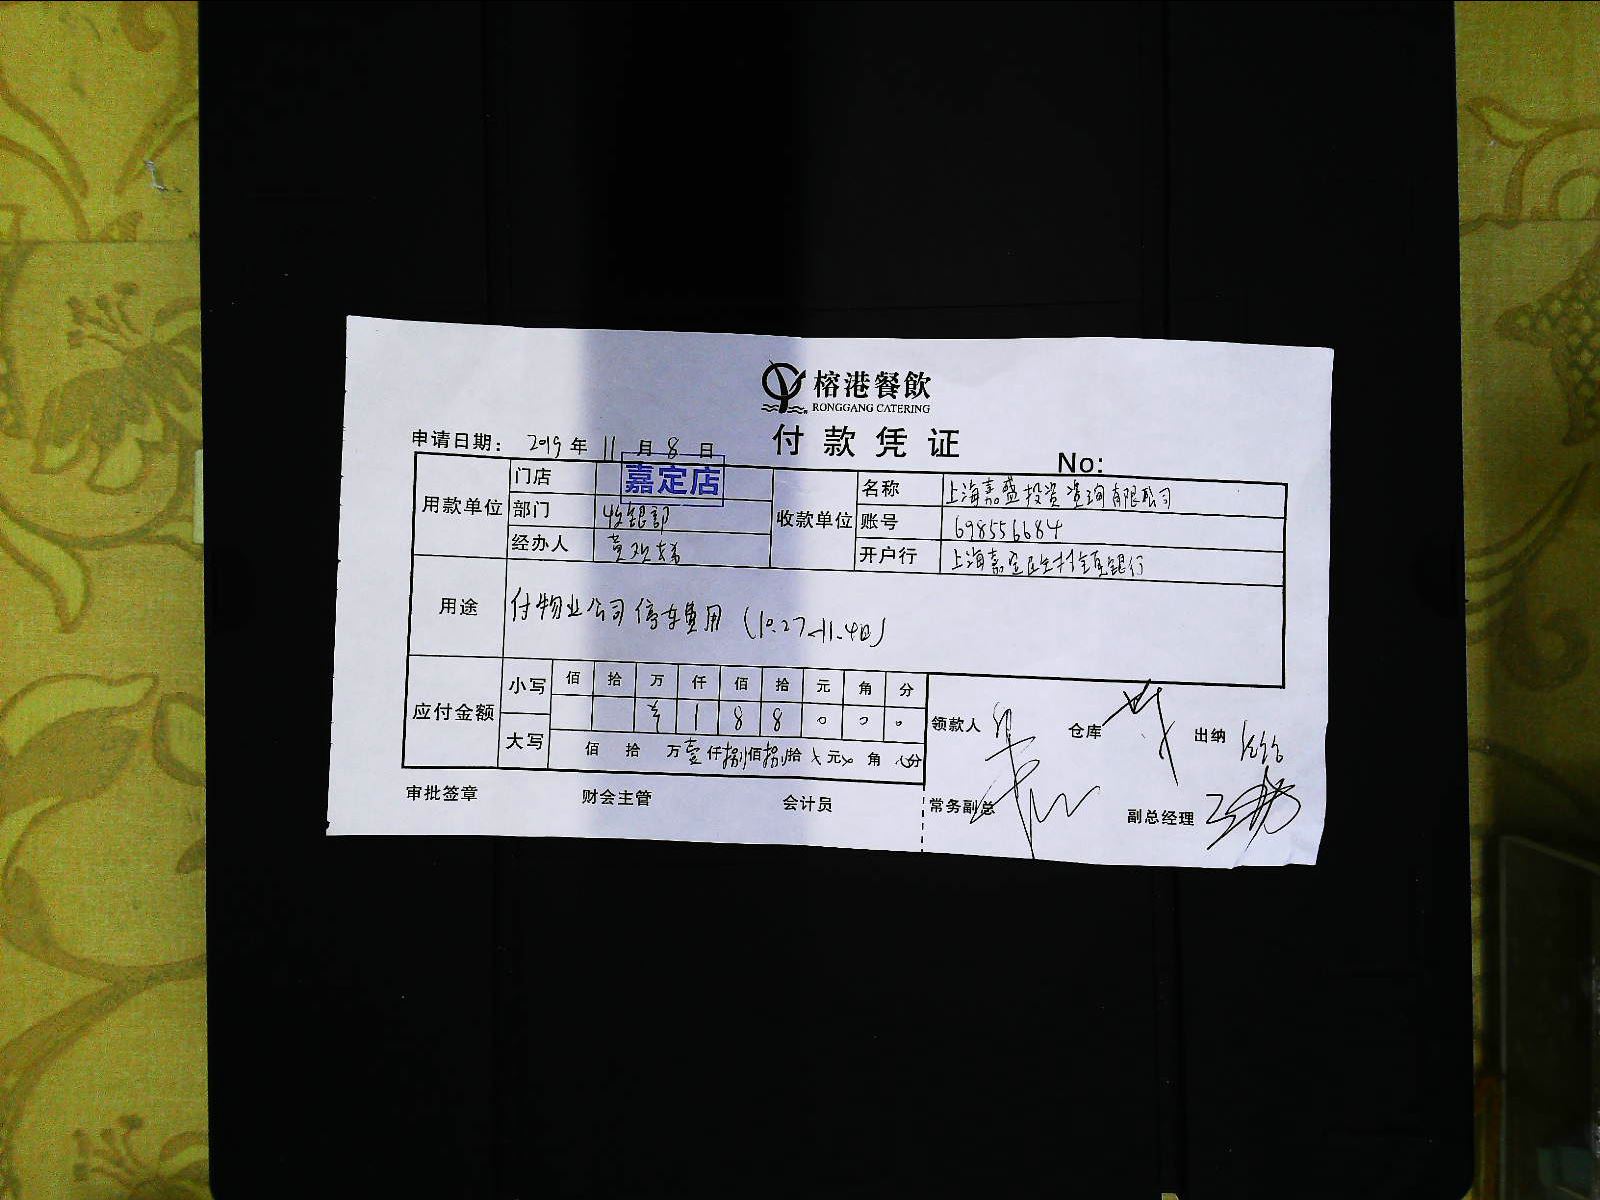 榕港餐飲
RONGGANG CATERING
付款凭证
申请日期: 2019年11月8日
No:
用款单位 门店 嘉定店 收款单位 名称 上海嘉盛投资咨询有限公司
部门 收银部 账号 698556684
经办人 黄欢娣 开户行 上海嘉定民生村镇银行
用途 付物业公司停车费用 (10.27-11.4日)
应付金额 小写 佰 拾 万 仟 佰 拾 元 角 分
¥ 1 8 8 0 0 0
大写 佰 拾 万壹仟捌佰捌拾 元 角 分
领款人 仓库 出纳
审批签章 财会主管 会计员 常务副总 副总经理